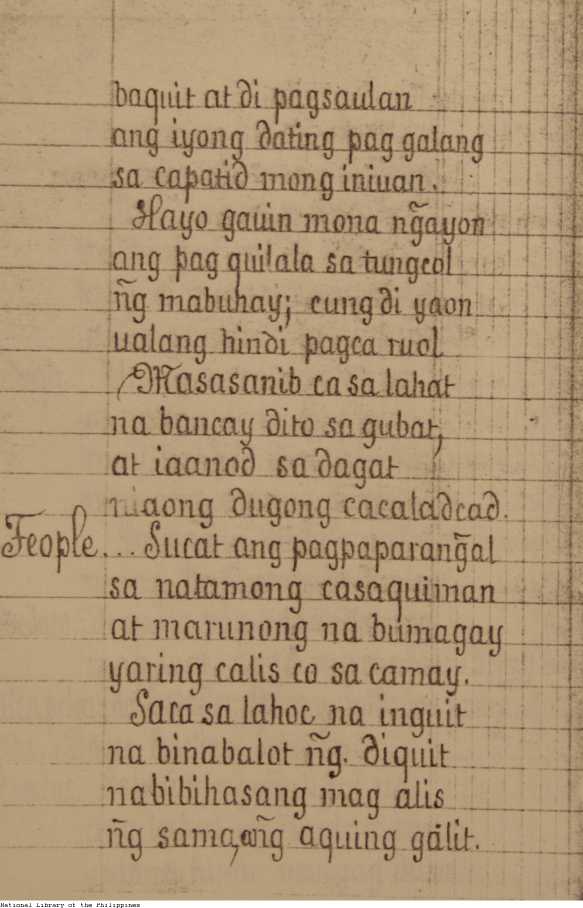 baquit at di pagsaulan
ang iyong dating pag galang
sa capatid mong iniuan.
Hayo gauin mona ng̃ayon
ang pag quilala sa tungcol
ng̃ mabuhay; cung di yaon
ualang hindi pagca ruol
Masasanib ca sa lahat
na bancay dito sa gubat,
at iaanod sa dagat
dugong cacaladcad.
Feople... Sucat ang pagpaparang̃al
sa natamong casaquiman
at marunong na bumagay
yaring calis co sa camay.
Saca sa lahoc na inguit
na binabalot ng̃. diquit
nabibihasang mag alis
ng̃ sama, ang̃ aquing gálit.
National Library of the Philippines